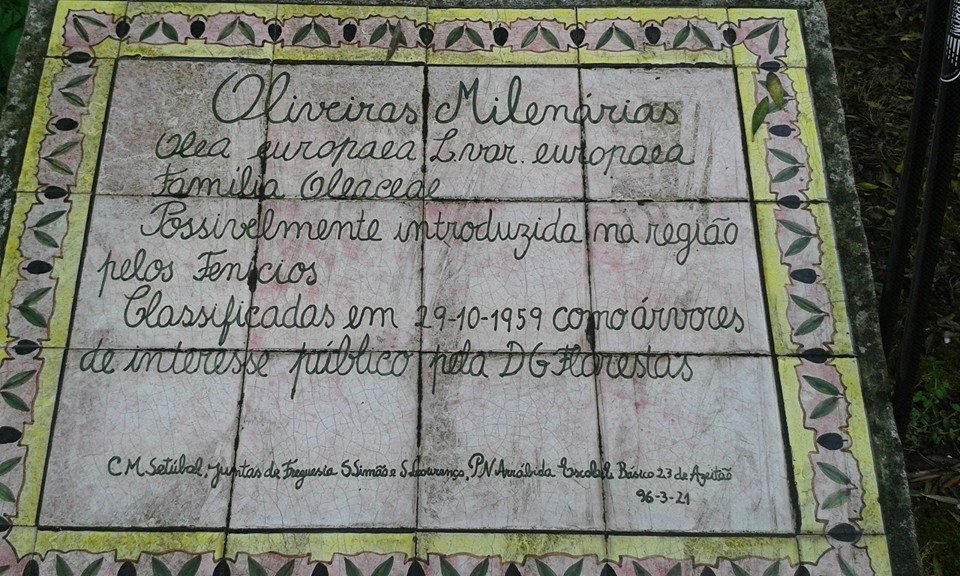 Oliveiras Milenárias
Olea europaea L. var. europaea
Família Oleaceae
Possivelmente introduzida na região
pelos Fenícios
Classificadas em 29-10-1959 como árvores
de interesse público pela DG Florestas
C.M. Setúbal, Juntas de Freguesia S. Simão e S. Lourenço, P.N. Arrábida Escola Básico 2 3 de Azeitão
96-3-21